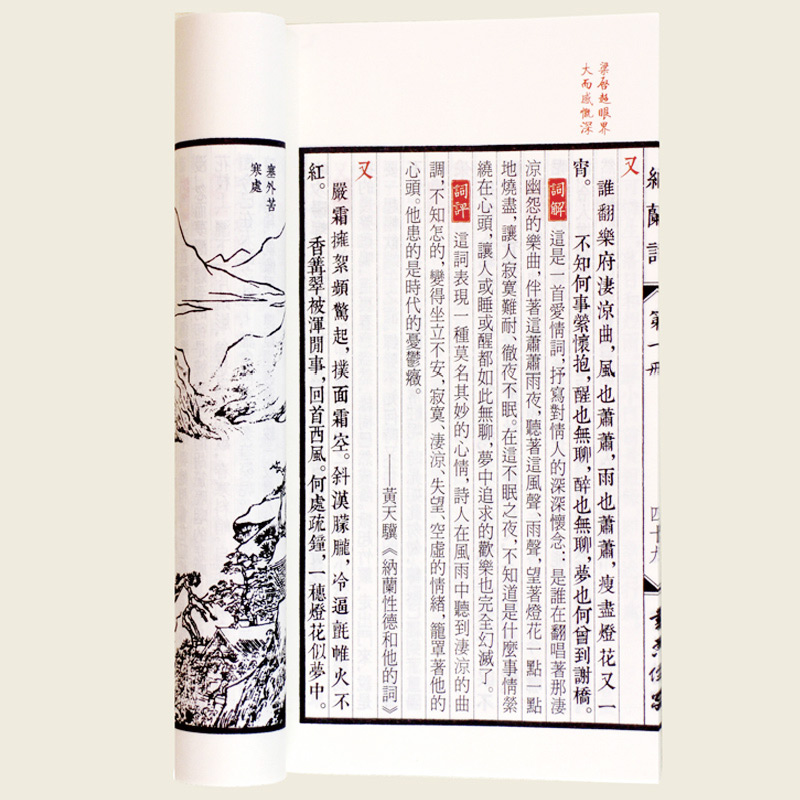 梁启超眼界
大而感慨深
納蘭詞
第一冊
四十九
又
誰翻樂府淒涼曲，風也蕭蕭，雨也蕭蕭，瘦盡燈花又一
宵。　不知何事縈懷抱，醒也無聊，醉也無聊，夢也何曾到謝橋。
詞解　這是一首愛情詞，抒寫對情人的深深懷念：是誰在翻唱著那淒
涼幽怨的樂曲，伴著這蕭蕭雨夜，聽著這風聲、雨聲，望著燈花一點一點
地燒盡，讓人寂寞難耐、徹夜不眠。在這不眠之夜，不知道是什麼事情縈
繞在心頭，讓人或睡或醒都如此無聊，夢中追求的歡樂也完全幻滅了。
詞評　這詞表現一種莫名其妙的心情，詩人在風雨中聽到淒涼的曲
調，不知怎的，變得坐立不安，寂寞、淒涼、失望、空虛的情緒，籠罩著他的
心頭。他患的是時代的憂鬱癥。
——黃天驥《納蘭性德和他的詞》
又
嚴霜擁絮頻驚起，撲面霜空。斜漢朦朧，冷逼氈帷火不
紅。　香篝翠被渾閒事，回首西風。何處疏鐘，一穗燈花似夢中。
塞外苦
寒處